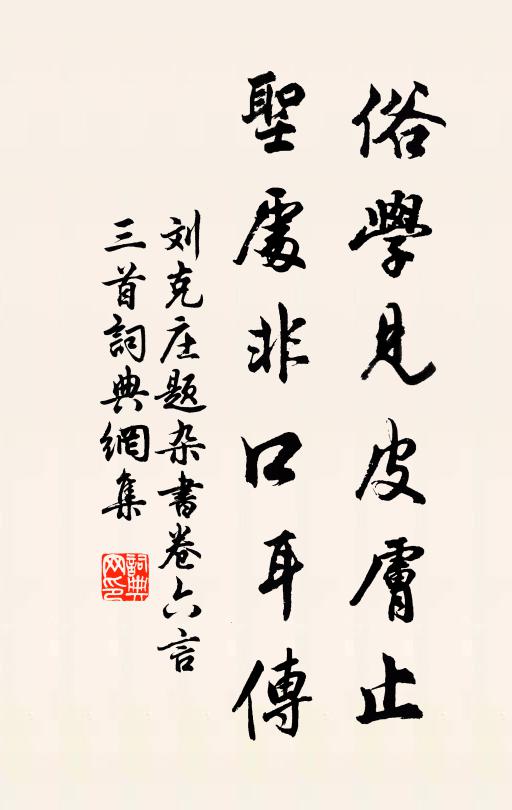 俗學見皮膚止
聖處非口耳傳
刘克庄题杂書卷六言
三首詞典網集
詞典网印